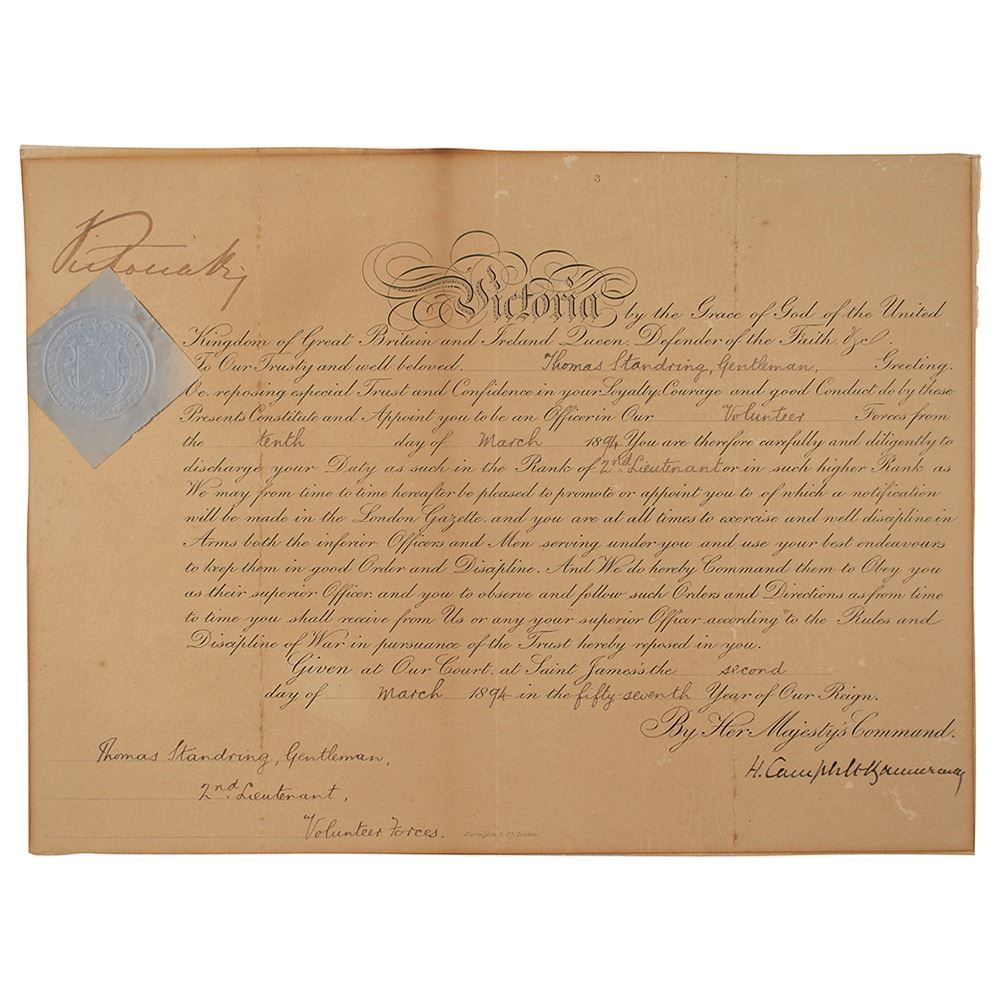 3
Victoria R I
Victoria by the Grace of God of the United
Kingdom of Great Britain and Ireland Queen. Defender of the Faith. &c.
To Our Trusty and well beloved. Thomas Standring, Gentleman, Greeting.
We. reposing especial Trust and Confidence in your Loyalty. Courage and good Conduct do by these
Presents Constitute and Appoint you to be an Officer in Our Volunteer Forces from
the tenth day of March 1894. You are therefore carefully and diligently to
discharge your Duty as such in the Rank of 2nd Lieutenant or in such higher Rank as
We may from time to time hereafter be pleased to promote or appoint you to of which a notification
will be made in the London Gazette. and you are at all times to exercise and well discipline in
Arms both the inferior Officers and Men serving under you and use your best endeavours
to keep them in good Order and Discipline. And We do hereby Command them to Obey you
as their superior Officer. and you to observe and follow such Orders and Directions as from time
to time you shall receive from Us or any your superior Officer according to the Rules and
Discipline of War in pursuance of the Trust hereby reposed in you.
Given at Our Court. at Saint James's the second
day of March 1894 in the fifty-seventh Year of Our Reign.
By Her Majesty's Command.
H. Campbell-Bannerman
Thomas Standring, Gentleman,
2nd Lieutenant,
Volunteer Forces.